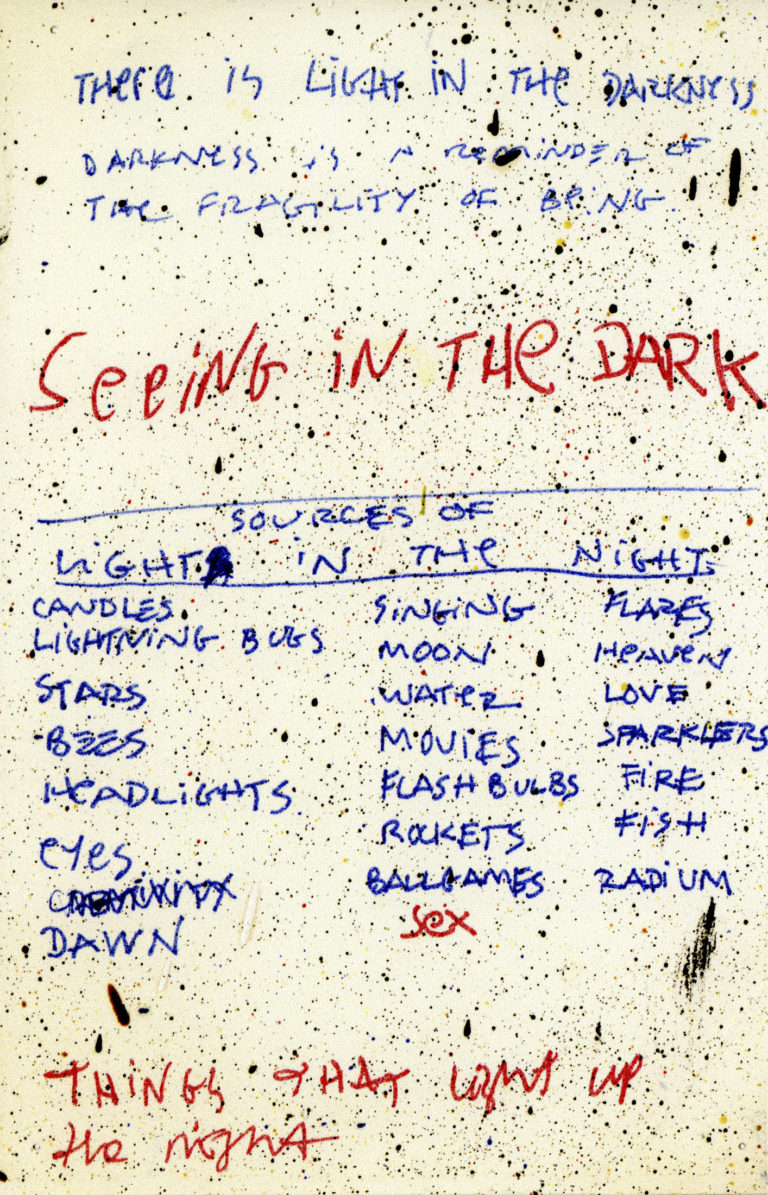 THERE IS LIGHT IN THE DARKNESS
DARKNESS IS A REMINDER OF
THE FRAGILITY OF BEING.
SEEING IN THE DARK
SOURCES OF
LIGHT IN THE NIGHT:
CANDLES
LIGHTNING BUGS
STARS
BEES
HEADLIGHTS
EYES
DAWN
SINGING
MOON
WATER
MOVIES
FLASHBULBS
ROCKETS
BALLGAMES
SEX
FLARES
HEAVEN
LOVE
SPARKLERS
FIRE
FISH
RADIUM
THINGS THAT LIGHT UP
the night